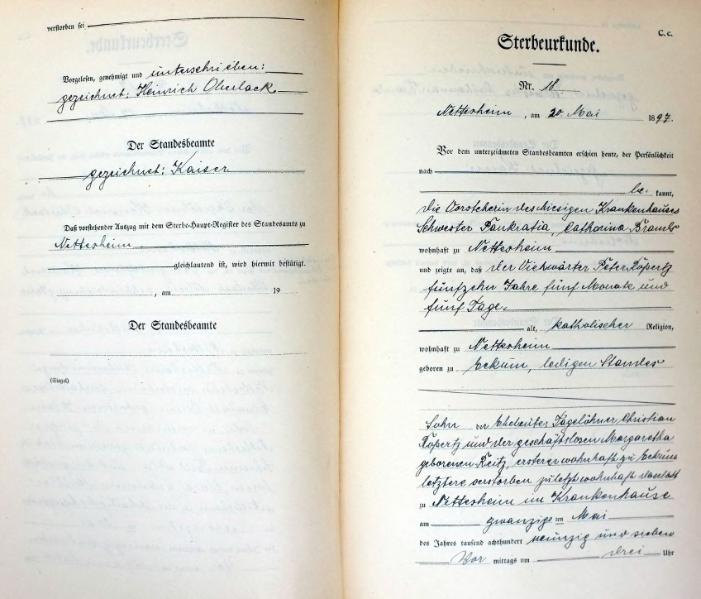 verstorben sei
Vorgelesen, genehmigt und unterschrieben:
gezeichnet: Heinrich Oberlack
Der Standesbeamte
gezeichnet: Kaiser
Daß vorstehender Auszug mit dem Sterbe-Haupt-Register des Standesamts zu
Nettesheim
gleichlautend ist, wird hiermit bestätigt.
, am 19
Der Standesbeamte
(Siegel)
C. c.
Sterbeurkunde.
Nr. 18.
Nettesheim, am 20. Mai 1897.
Vor dem unterzeichneten Standesbeamten erschien heute, der Persönlichkeit
nach
be kannt,
die Vorsteherin des hiesigen Krankenhauses
Schwester Pankratia, Katharina
wohnhaft zu Nettesheim
und zeigte an, daß der Viehwärter Peter Köpertz
fünfzehn Jahre fünf Monate und
fünf Tage
alt, katholischer Religion,
wohnhaft zu Nettesheim
geboren zu Eckum, ledigen Standes
Sohn der Eheleute Tagelöhner Christian
Köpertz und der geschäftslosen Margaretha
geborenen Reitz, ersterer wohnhaft zu Eckum
letztere verstorben zuletzt wohnhaft daselbst
zu Nettesheim im Krankenhause
am zwanzigsten Mai
des Jahres tausend achthundert neunzig und sieben
Vor mittags um drei Uhr